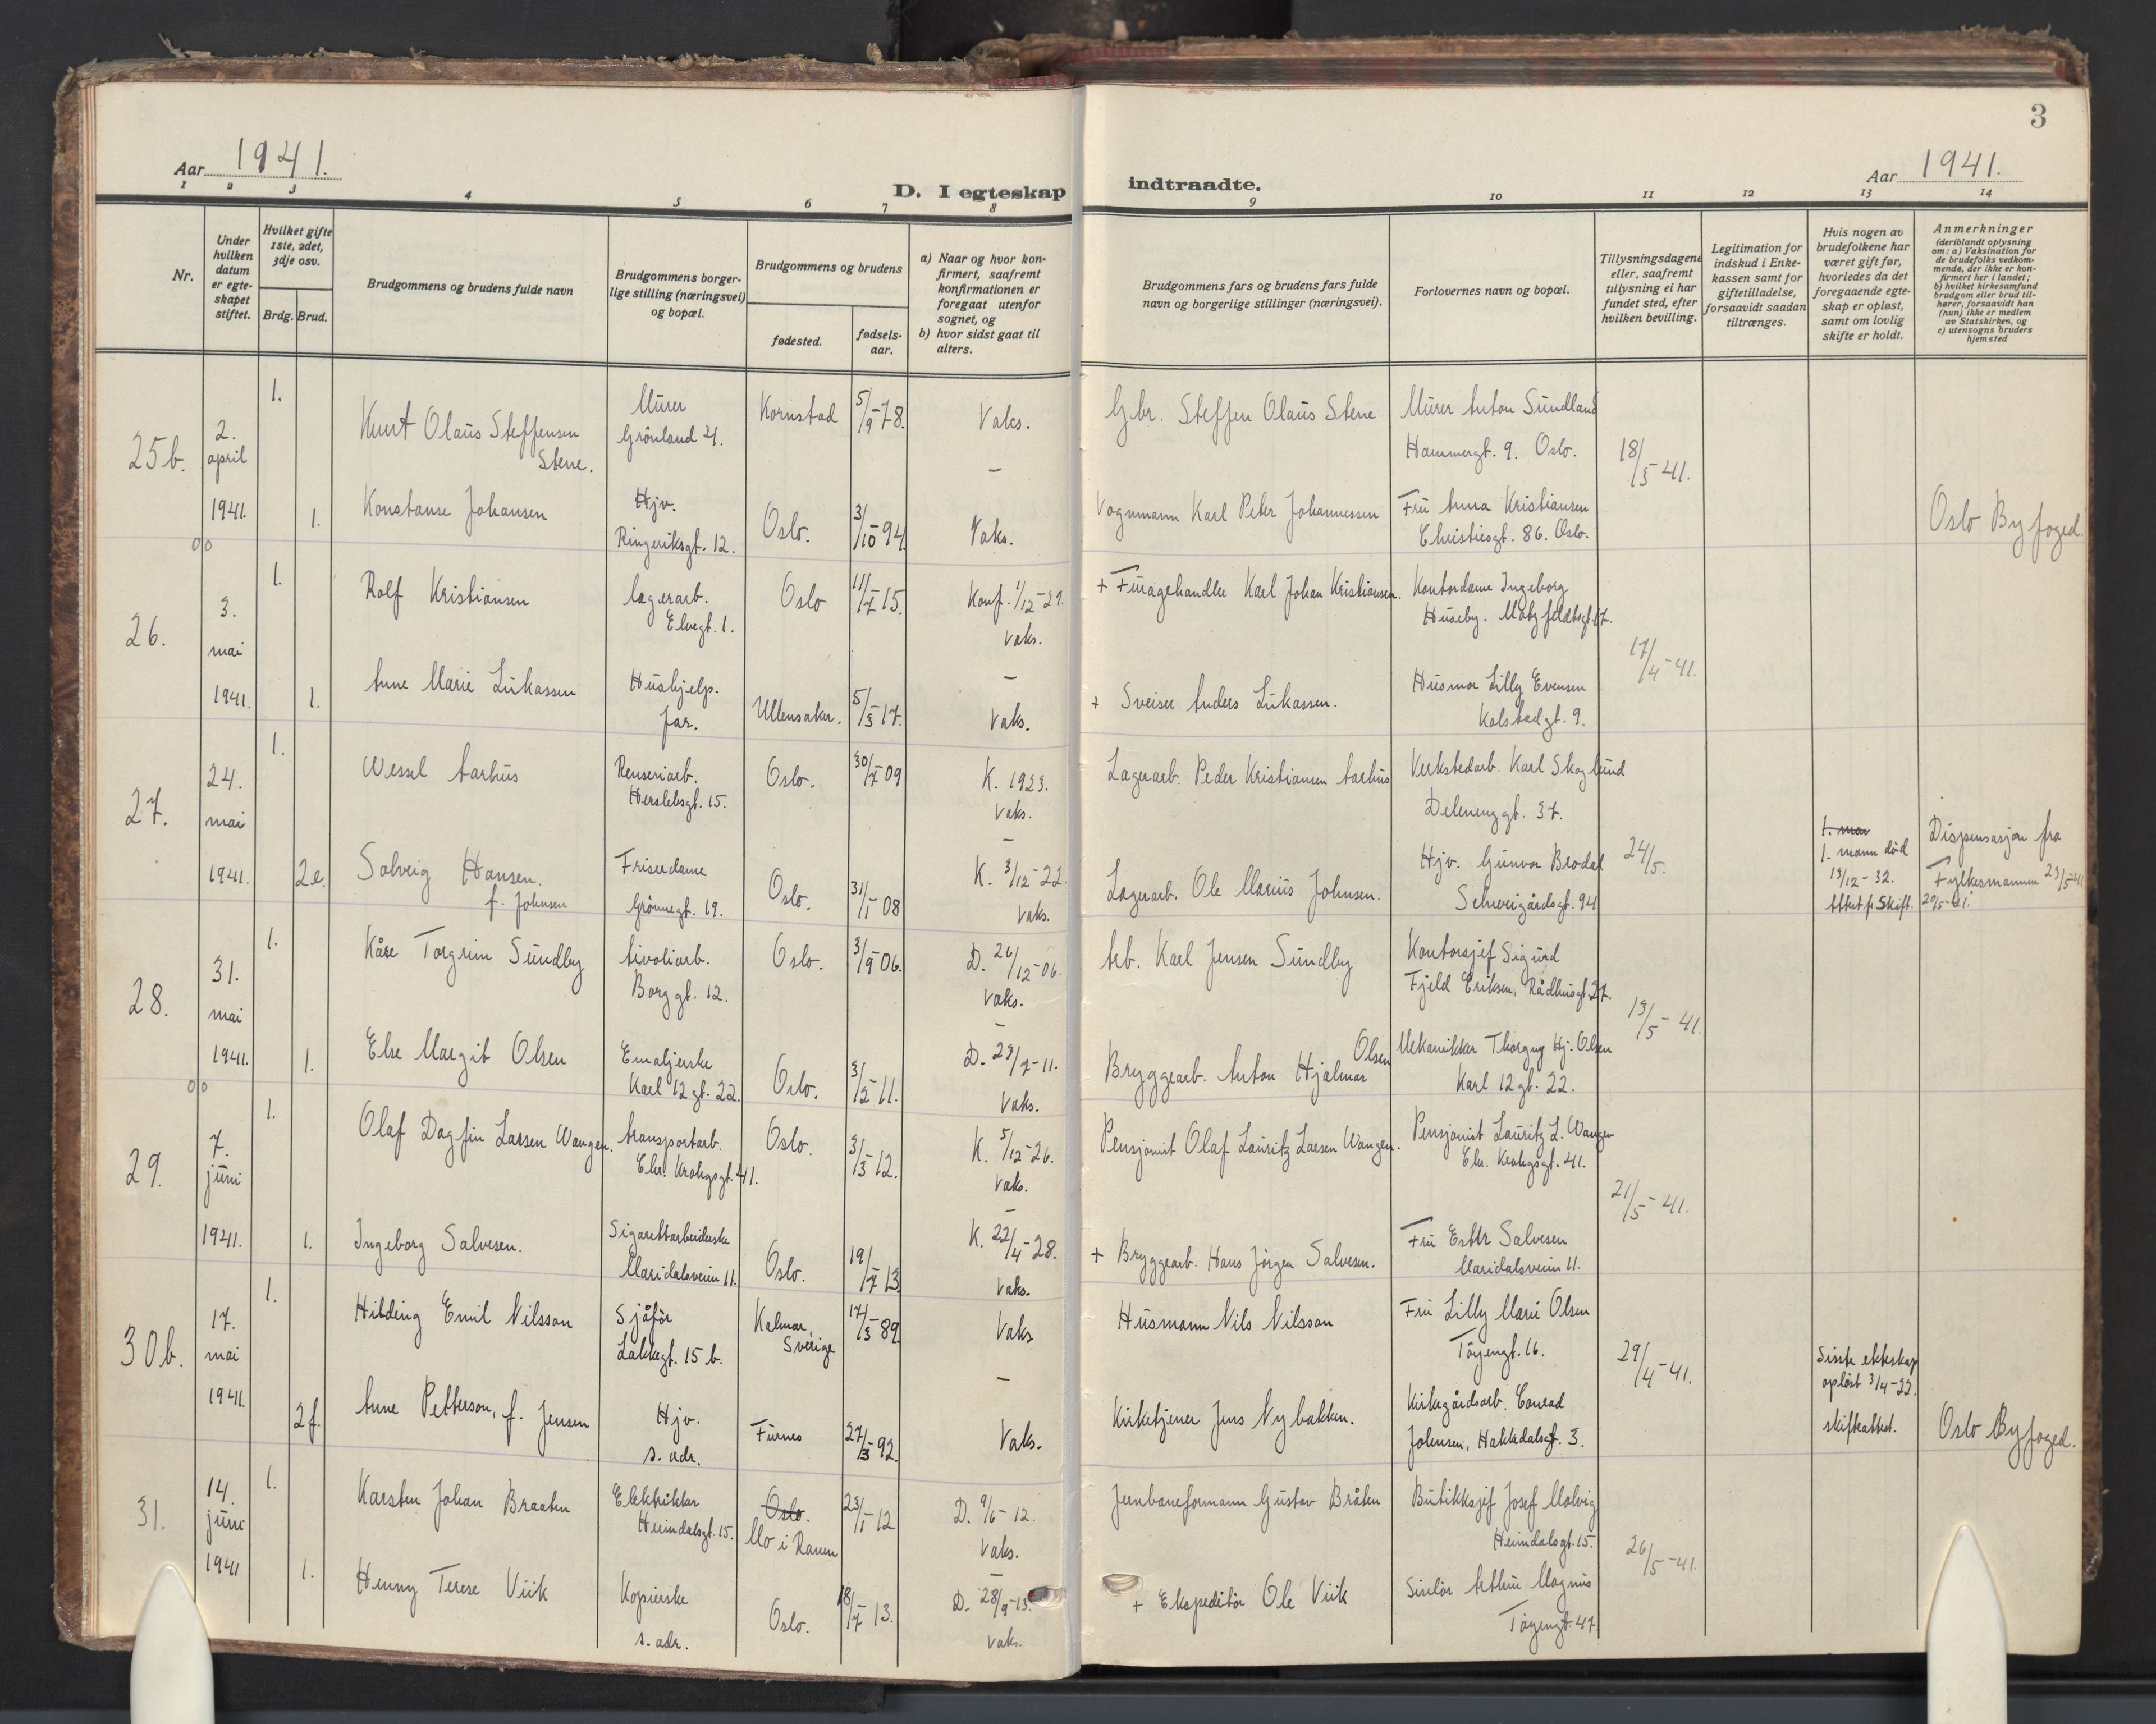 3
Aar 1941.
D. I egteskap indtraadte.
Aar 1941.
1 2 3 4 5 6 7 8 9 10 11 12 13 14
Nr.
Under hvilken datum er egte-skapet stiftet.
Hvilket gifte 1ste, 2det, 3dje osv.
Brdg. Brud.
Brudgommens og brudens fulde navn
Brudgommens borger-lige stilling (næringsvei) og bopæl.
Brudgommens og brudens
fødested.
fødsels-aar.
a) Naar og hvor kon-firmert, saafremt konfirmationen er foregaat utenfor sognet, og
b) hvor sidst gaat til alters.
Brudgommens fars og brudens fars fulde navn og borgerlige stillinger (næringsvei).
Forlovernes navn og bopæl.
Tillysningsdagene eller, saafremt tillysning ei har fundet sted, efter hvilken bevilling.
Legitimation for indskud i Enke-kassen samt for giftetilladelse, forsaavidt saadan tiltrænges.
Hvis nogen av brudefolkene har været gift før, hvorledes da det foregaaende egte-skap er opløst, samt om lovlig skifte er holdt.
Anmerkninger
(deriblandt oplysning om: a) Vaksination for de brudefolks vedkom-mende, der ikke er kon-firmert her i landet; b) hvilket kirkesamfund brudgom eller brud til-hører, forsaavidt han (hun) ikke er medlem av Statskirken, og c) utensogns bruders hjemsted
25b. 2. april 1941. 1.
Knut Olaus Steffensen Stene.
Murer Grønland 4.
Kornstad 5/9-78. Vaks.
Gbr. Steffen Olaus Stene
Murer Anton Sundland
Hammergt. 9. Oslo.
18/3-41.
1. Konstanse Johansen
Hjv.
Ringeriksgt. 12.
Oslo. 3/10-94. Vaks.
Vognmann Karl Peter Johannessen
Fru Anna Kristiansen
Christiesgt. 86. Oslo.
Oslo Byfoged.
26. 3. mai 1941. 1.
Rolf Kristiansen
lagerarb.
Elvegt. 1.
Oslo 11/7-15. Konf. 1/12-29.
Vaks.
+ Furagehandler Karl Johan Kristiansen.
Kontordame Ingeborg
Huseby. Motzfeldtsgt. 17.
17/4-41.
1. Anne Marie Lukassen
Hushjelp.
Jar.
Ullensaker. 5/3-17. Vaks.
+ Sveiser Anders Lukassen.
Husmor Lilly Evensen
Kolstadgt. 9.
27. 24. mai 1941. 1.
Wessel Aarhus
Renseriarb.
Herslebsgt. 15.
Oslo. 30/7-09 K. 1923.
Vaks.
Lagerarb. Peder Kristiansen Aarhus
Verkstedarb. Karl Skoglund
Delenenggt. 37.
24/5.
2e. Solveig Hansen.
f. Johnsen
Friserdame
Grønnegt. 19.
Oslo. 31/1-08 K. 3/12-22.
Vaks.
Lagerarb. Ole Marius Johnsen.
Hjv. Gunvor Brodal
Schweigårdsgt. 94
1. mann død
13/12-32.
Attest fr Skift.
Dispensasjon fra
Fylkesmannen 23/5-41
28. 31. mai 1941. 1.
Kåre Torgrim Sundby
tivoliarb.
Borggt. 12.
Oslo. 3/9-06. D. 26/12-06.
Vaks.
Arb. Karl Jensen Sundby
Kontorsjef Sigurd
Fjeld Eriksen, Rådhusgt. 27.
13/5-41.
1. Else Margit Olsen
Emaljerske
Karl 12 gt. 22.
Oslo. 3/5-11. D. 23/7-11.
Vaks.
Bryggearb. Anton Hjalmar Olsen
Mekanikker Thorgny Hj. Olsen
Karl 12 gt. 22.
29. 7. juni 1941. 1.
Olaf Dagfin Larsen Wangen.
transportarb.
Chr. Krohgsgt. 41.
Oslo. 3/3-12. K. 5/12-26.
Vaks.
Pensjonist Olaf Lauritz Larsen Wangen.
Pensjonist Lauritz L. Wangen
Chr. Krohgsgt. 41.
21/5-41.
1. Ingeborg Salvesen.
Sigarettarbeiderske
Maridalsveien 11.
Oslo. 19/7-13 K. 22/4-28.
Vaks.
+ Bryggearb. Hans Jörgen Salvesen.
Fru Esther Salvesen
Maridalsveien 11.
30b. 17. mai 1941. 1.
Hilding Emil Nilsson
Sjåför
Lakkegt. 15 b.
Kalmar, Sverige 17/3-89. Vaks
Husmann Nils Nilsson
Fru Lilly Marie Olsen
Töyengt. 16.
29/4-41.
2f. Anne Petterson, f. Jensen
Hjv.
s. adr.
Furnes 27/3-92. Vaks.
Kirketjener Jens Nybakken.
Kirkegårdsarb. Conrad
Johnsen, Hakkdalsgt. 3.
Siste ekteskap
oplöst 3/4-22.
skifteattest.
Oslo Byfoged.
31. 14. juni 1941 1.
Karsten Johan Braaten
Elektriker
Heimdalsgt. 15.
Oslo.
Mo i Ranen 23/1-12 D. 9/6-12.
Vaks.
Jernbaneformann Gustav Bråten
Butikksjef Josef Molvig
Heimdalsgt. 15.
26/5-41.
1. Henny Terese Viik
Kopierske
s. adr.
Oslo. 18/7-13. D. 28/9-13.
Vaks.
+ Ekspeditör Ole Viik
Siselör Arthur Magnus
Töyengt. 47.